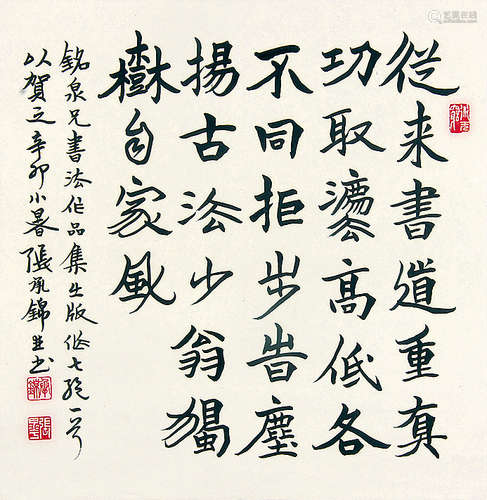 從来書道重真
功取灋高低各
不同拒步昔塵
揚古法少翁獨
樹自家風
銘泉兄書法作品集出版作七絶一首
以賀之辛卯小暑張承錦並書